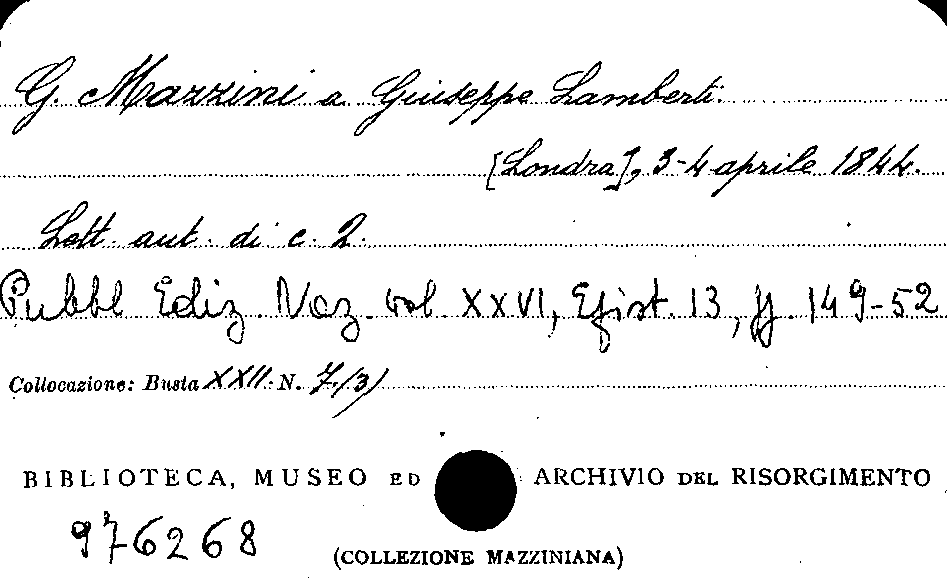 G. Mazzini a Giuseppe Lamberti.
[Londra], 3-4 aprile 1844.
Lett. aut. di c. 2.
Pubbl Ediz. Naz. vol. XXVI, Epist. 13, pp. 149-52
Collocazione: Busta XXII. N. 7(3)
BIBLIOTECA, MUSEO ED ARCHIVIO DEL RISORGIMENTO
976268
(COLLEZIONE MAZZINIANA)